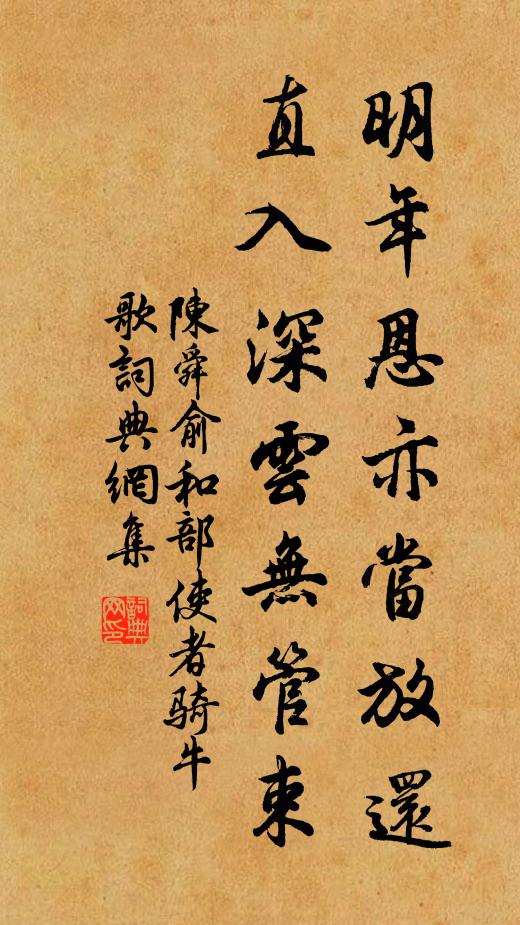 明年恩亦當放還
直入深雲無管束
陳舜俞和部使者骑牛
歌詞典網集
詞典
网印